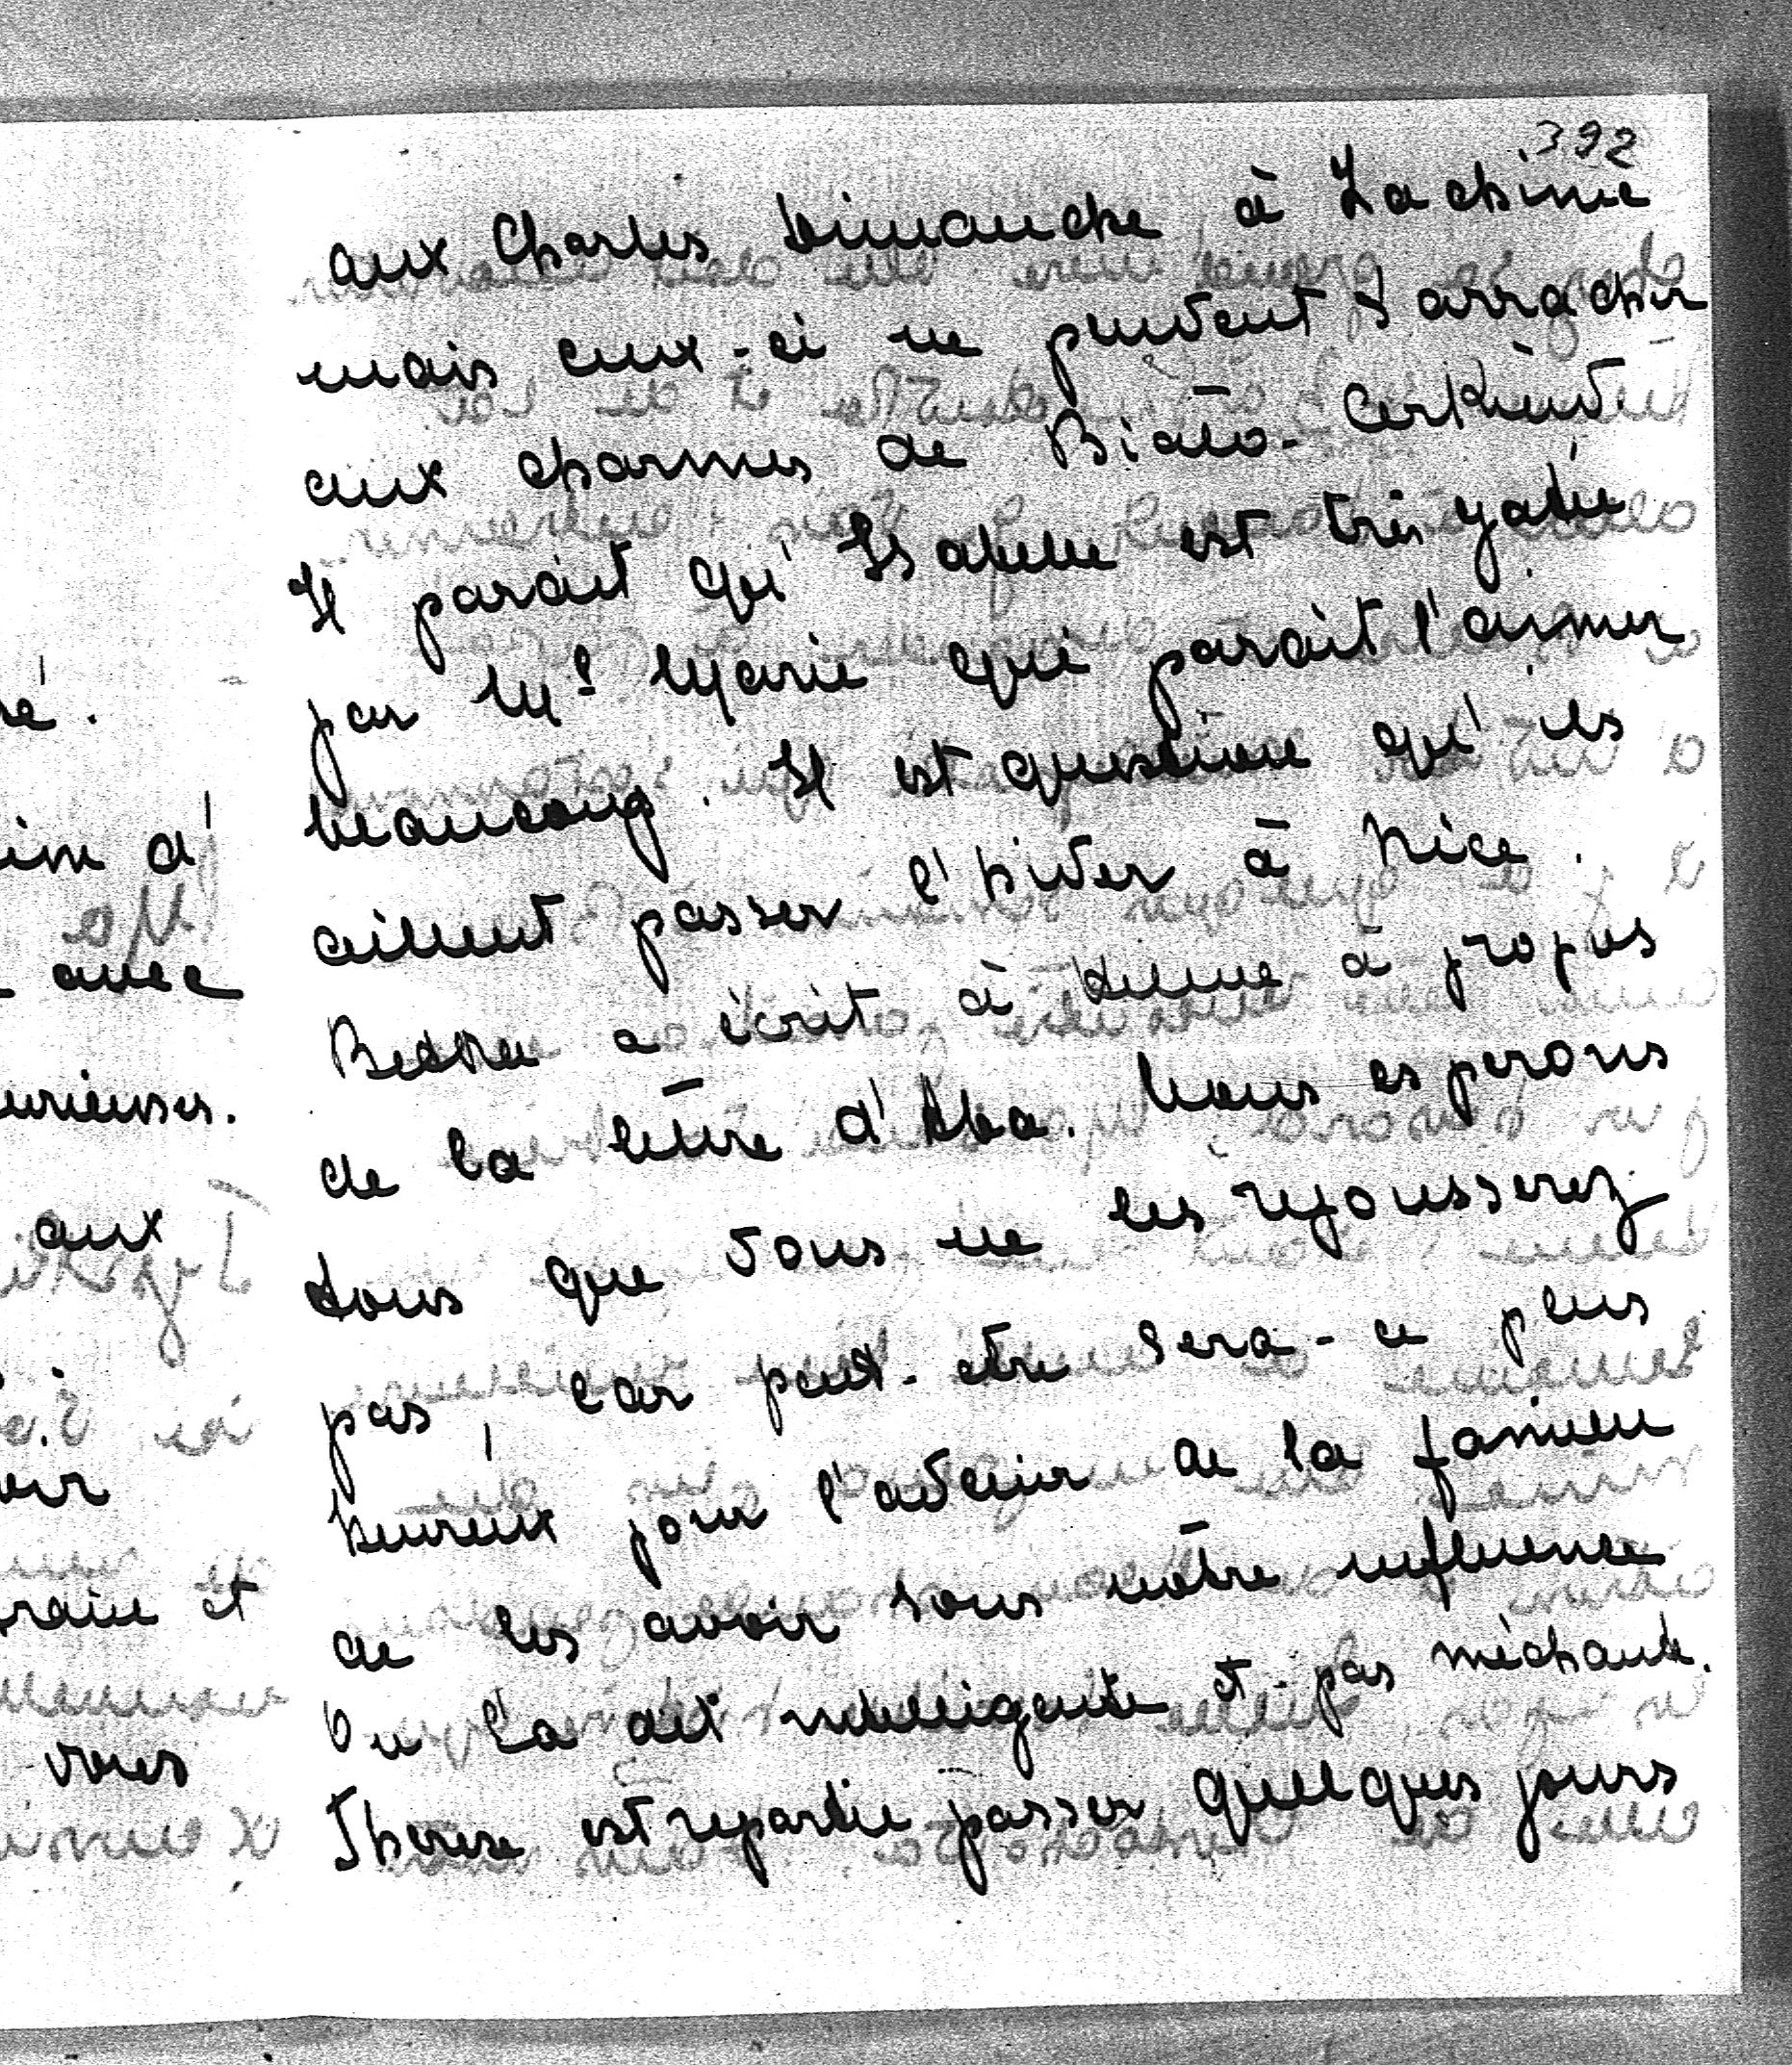 392
aux Charles Dimanche à Lachinie
mais ceux-ci ne peuvent s'arracher
aux charmes de Biało-Cerkiew
Il parait qu'Isabelle est très gatée
par Me Marie qui parait l'aimer
beaucoup. Il est question qu'ils
aillent passer l'hiver à Nice.
a écrit à à propos
de la lettre d'Aba. Nous esperons
tous que vous ne les rejousserez
pas, car peut-etre sera-ce plus
heureux pour l'avenir de la famille
de les avoir sous nôtre influence
On la dit intelligente et pas méchante.
Therese est repartie passer quelques jours
ré.
d'
avec
curieuses.
aux
oir
et
vous